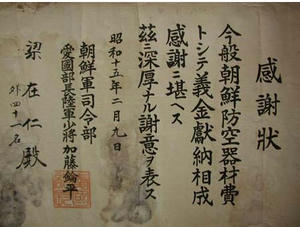 感謝狀
今般朝鮮防空器材費
トシテ義金獻納相成
感謝ニ堪ヘス
茲ニ深厚ナル謝意ヲ表ス
昭和十五年二月九日
朝鮮軍司令部
愛國部長陸軍少將加藤鑰平
梁在仁殿
外四十一名